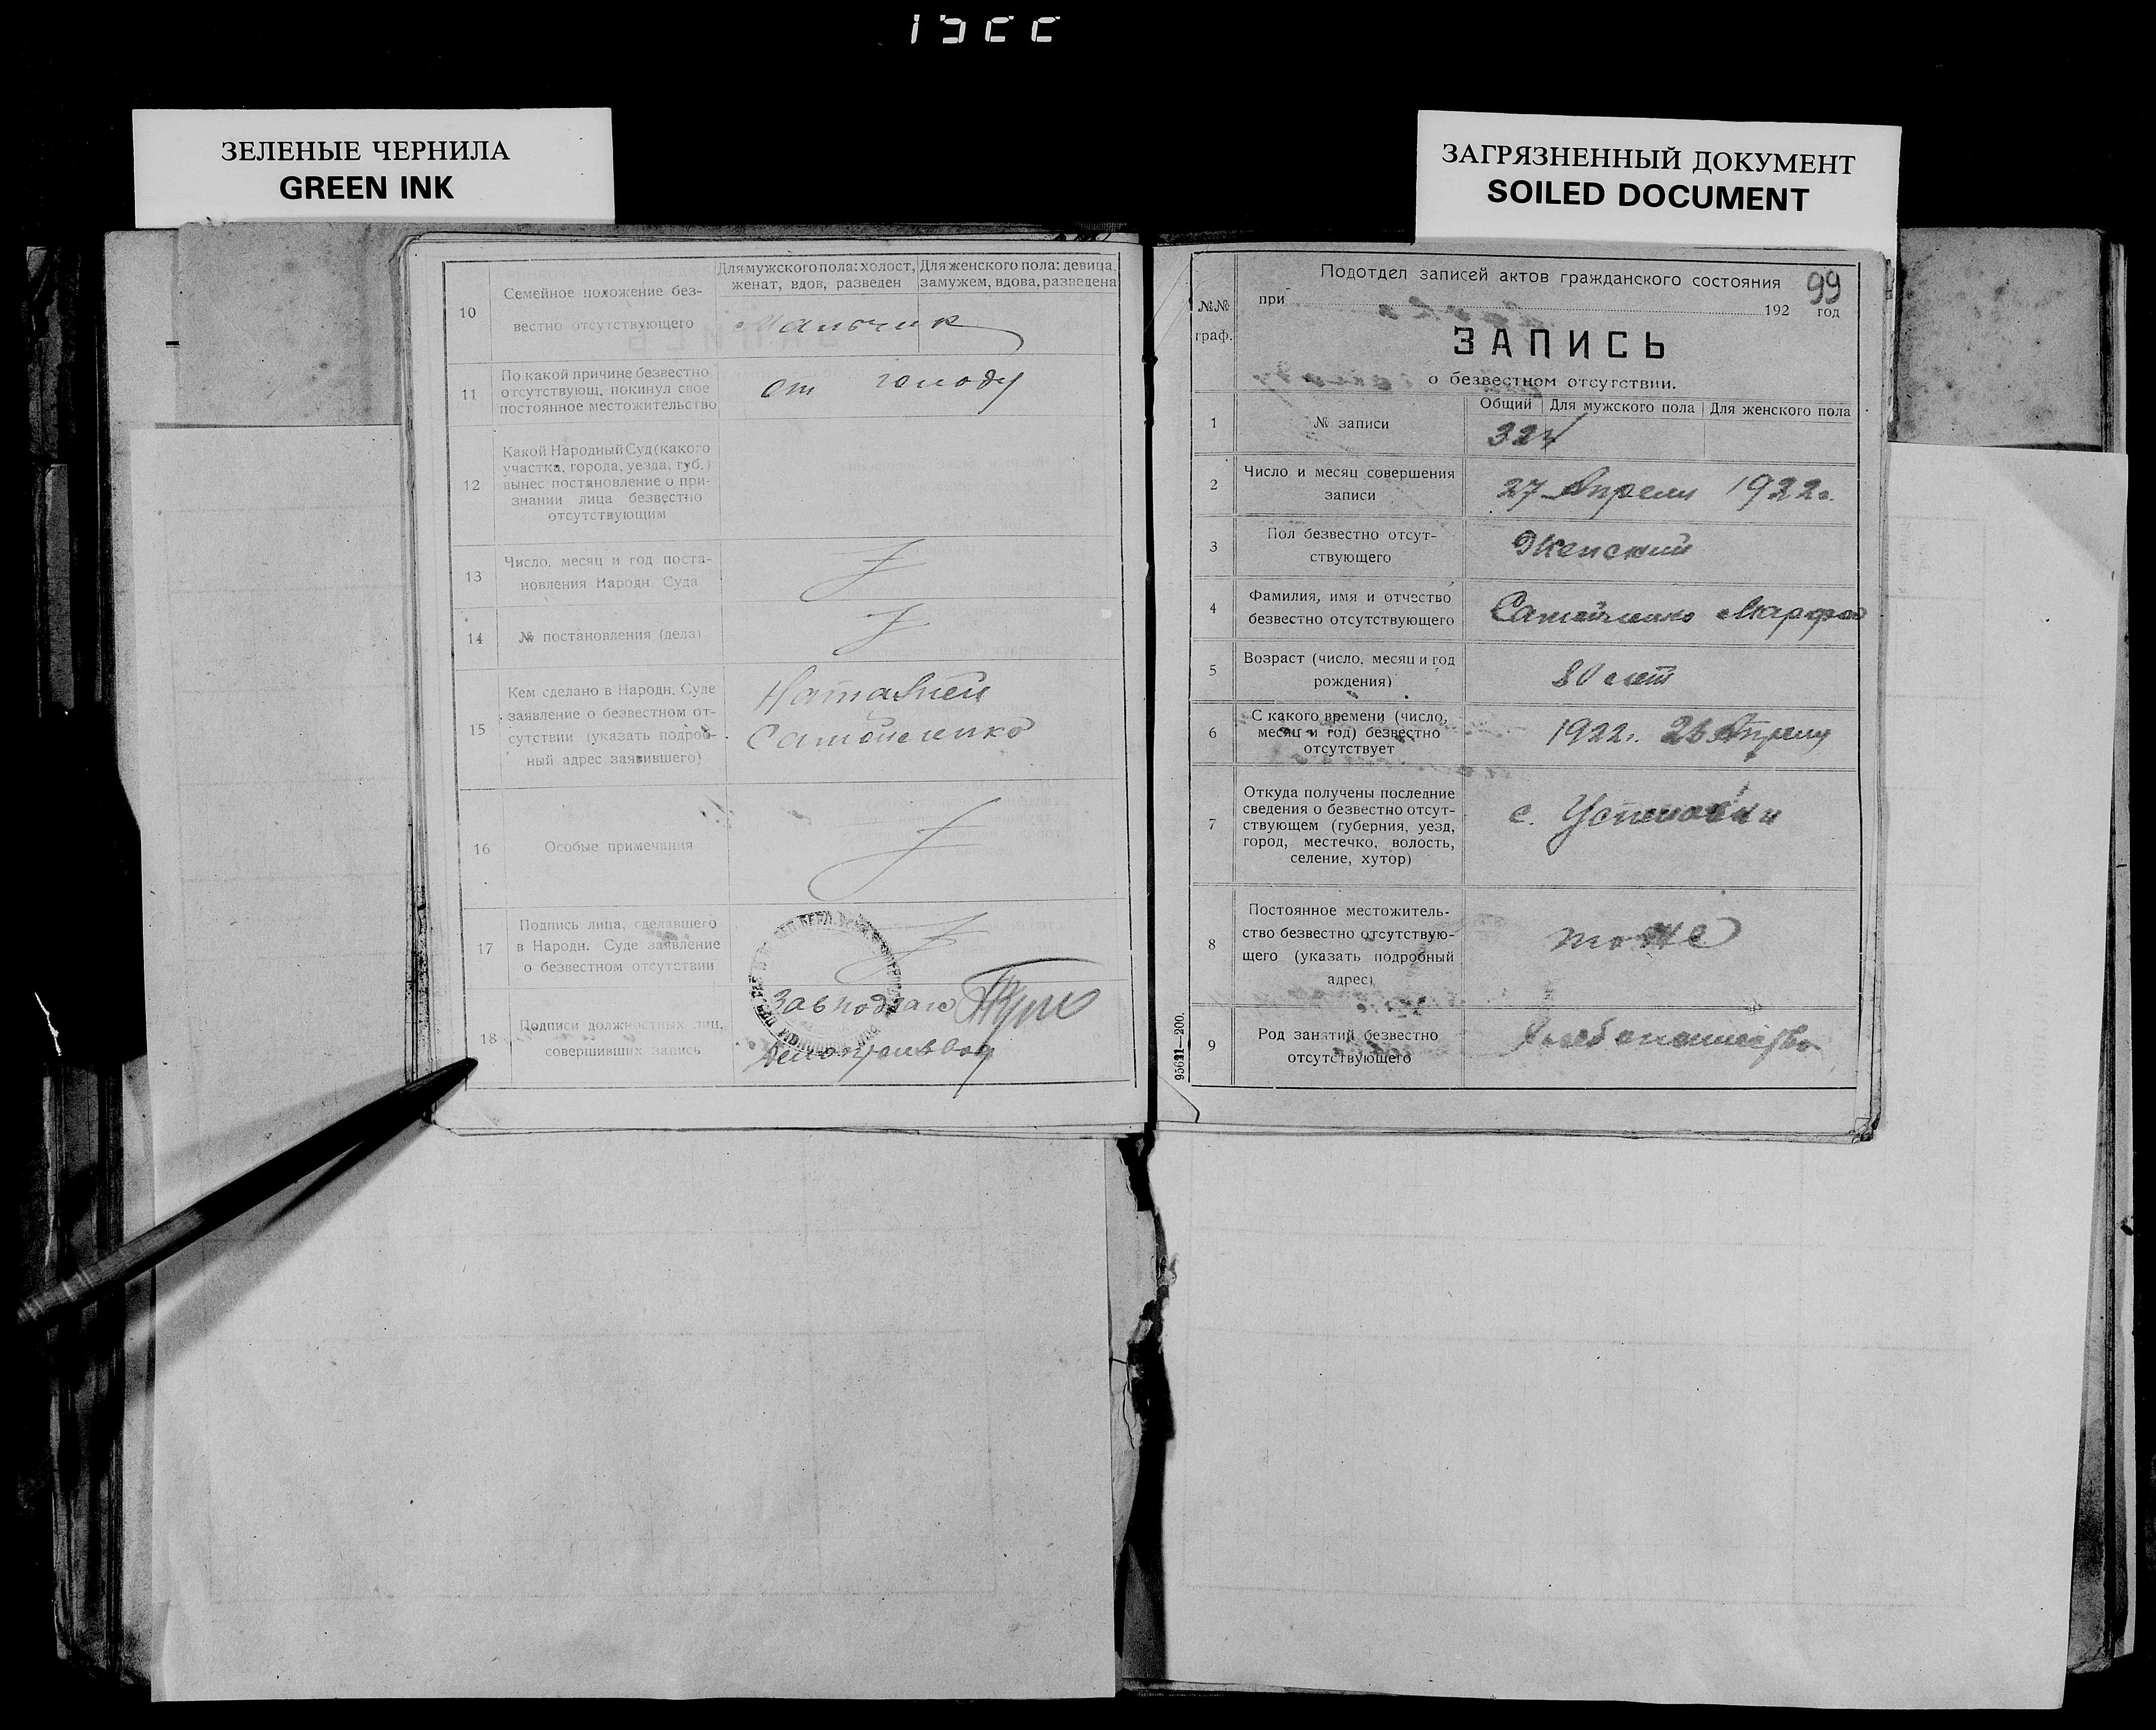 ЗЕЛЕНЫЕ ЧЕРНИЛА
GREEN INK
ЗАГРЯЗНЕННЫЙ ДОКУМЕНТ
SOILED DOCUMENT
10
Семейное положение без-
вестно отсутствующего
Для мужского пола: холост,
женат, вдов, разведен
Для женского пола: девица,
замужем, вдова, разведена
Мальчик
11
По какой причине безвестно
отсутствующ. покинул свое
постоянное местожительство
от голоду
12
Какой Народный Суд (какого
участка, города, уезда, губ.)
вынес постановление о при-
знании лица безвестно
отсутствующим
13
Число, месяц и год поста-
новления Народн. Суда
14
№ постановления (дела)
15
Кем сделано в Народн. Суде
заявление о безвестном от-
сутствии (указать подроб-
ный адрес заявившего)
Наталией
Самойленко
16
Особые примечания
17
Подпись лица, сделавшего
в Народн. Суде заявление
о безвестном отсутствии
18
Подписи должностных лиц,
совершивших запись
Завподзагс
Делопроизвод
99
Подотдел записей актов гражданского состояния
№№
граф.
при 192 год
ЗАПИСЬ
о безвестном отсутствии.
1
№ записи
Общий
Для мужского пола
Для женского пола
324
2
Число и месяц совершения
записи
27 Апреля 1922г.
3
Пол безвестно отсут-
ствующего
Женский
4
Фамилия, имя и отчество
безвестно отсутствующего
Самойленко Марфа
5
Возраст (число, месяц и год
рождения)
80 лет
6
С какого времени (число,
месяц и год) безвестно
отсутствует
1922г. 26 Апреля
7
Откуда получены последние
сведения о безвестно отсут-
ствующем (губерния, уезд,
город, местечко, волость,
селение, хутор)
с.
8
Постоянное местожитель-
ство безвестно отсутствую-
щего (указать подробный
адрес)
тоже
9
Род занятий безвестно
отсутствующего
Хлебопашество
95621—200.